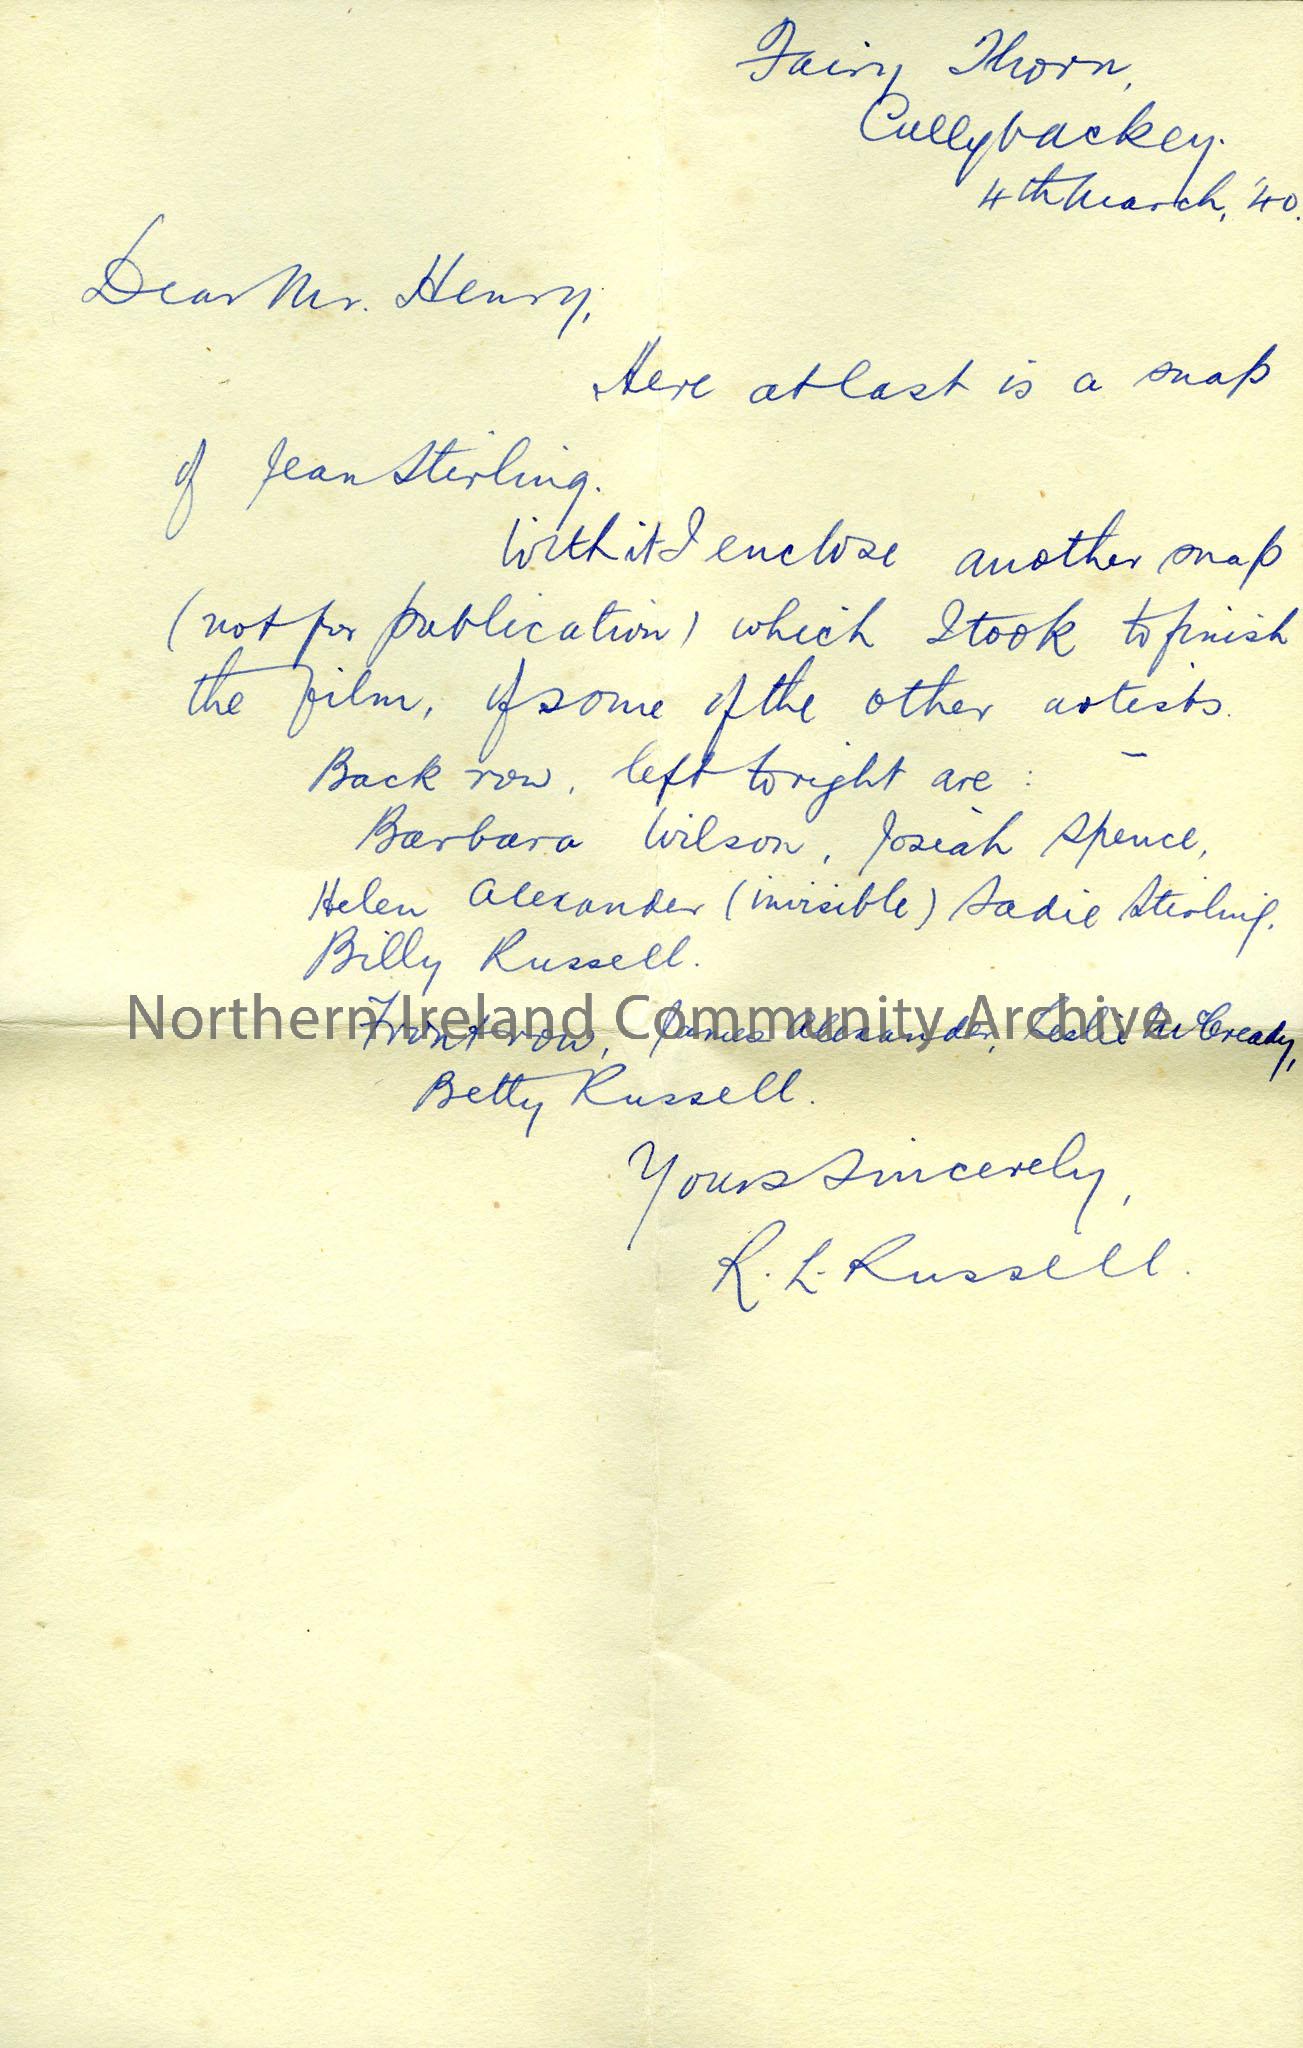 Fairy Thorn,
Cullybackey.
4th March, '40.
Dear Mr. Henry,
Here at last is a snap
of Jean Sterling.
With it I enclose another snap
(not for publication) which I took to finish
the film, of some of the other artists.
Back row, left to right are : –
Barbara Wilson, Josiah Spence,
Helen Alexander (invisible) Sadie Sterling,
Billy Russell.
Northern Ireland Community Archive
Front row, James Alexander, Leslie McCready,
Betty Russell.
Yours sincerely,
R. L. Russell.